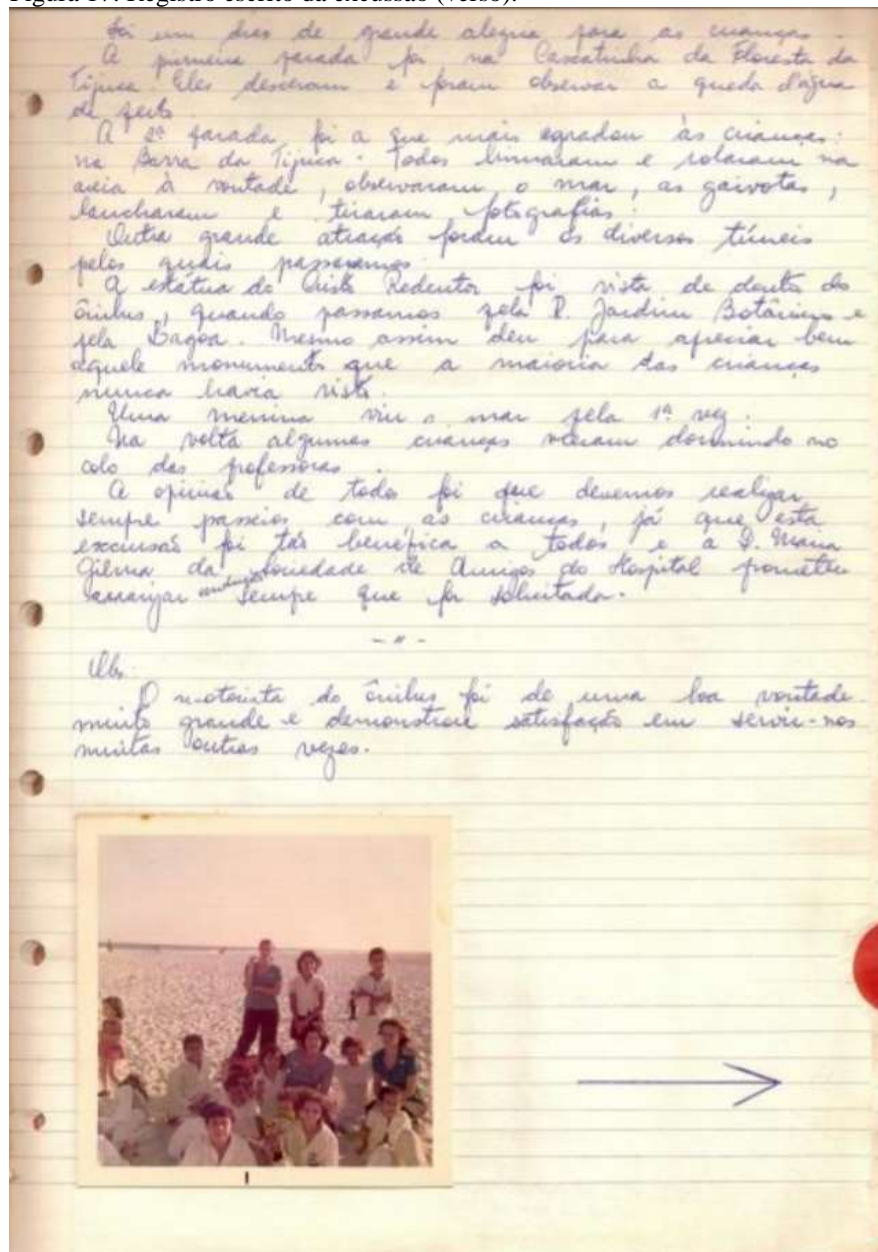 Figura 17. Registro escrito da excussão (verso).
Foi um dias de grande alegria para as crianças.
A primeira parada foi na Cascatinha da Floresta da
Tijuca. Eles desceram e foram observar a queda d'água
de perto.
A 2ª parada foi a que mais agradou às crianças:
na Barra da Tijuca. Todos brincaram e rolaram na
areia à vontade, observaram o mar, as gaivotas,
lancharam e tiraram fotografias.
Outra grande atração foram os diversos túneis
pelos quais passaramos.
A estátua do Cristo Redentor foi vista de dentro do
ônibus, quando passamos pela R. Jardim Botânico e
pela Lagoa. Mesmo assim deu para apreciar bem
aquele monumento que a maioria das crianças
nunca havia visto.
Uma menina viu o mar pela 1ª vez.
Na volta algumas crianças vieram dormindo no
colo das professoras.
A opinião de todos foi que devemos realizar
sempre passeios com as crianças, já que esta
excursão foi tão benéfica a todos e a D. Maria
Gilma da Sociedade de Amigos do Hospital prometeu
arranjar condução sempre que for solicitada.
- " -
Obs.
O motorista do ônibus foi de uma boa vontade
muito grande e demonstrou satisfação em servir-nos
muitas outras vezes.